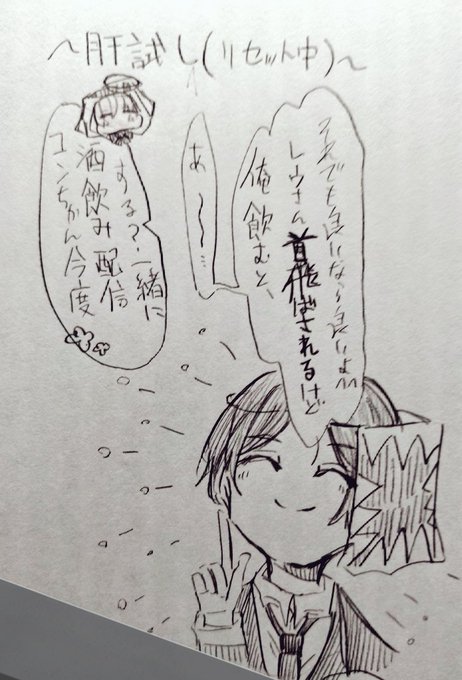 〜肝試し(リセット中)〜
コンちゃん今度
酒飲み配信
する？一緒に
あ〜〜…
俺飲むと、
レウさん首飛ばされるけど
それでも良いなら良いよ